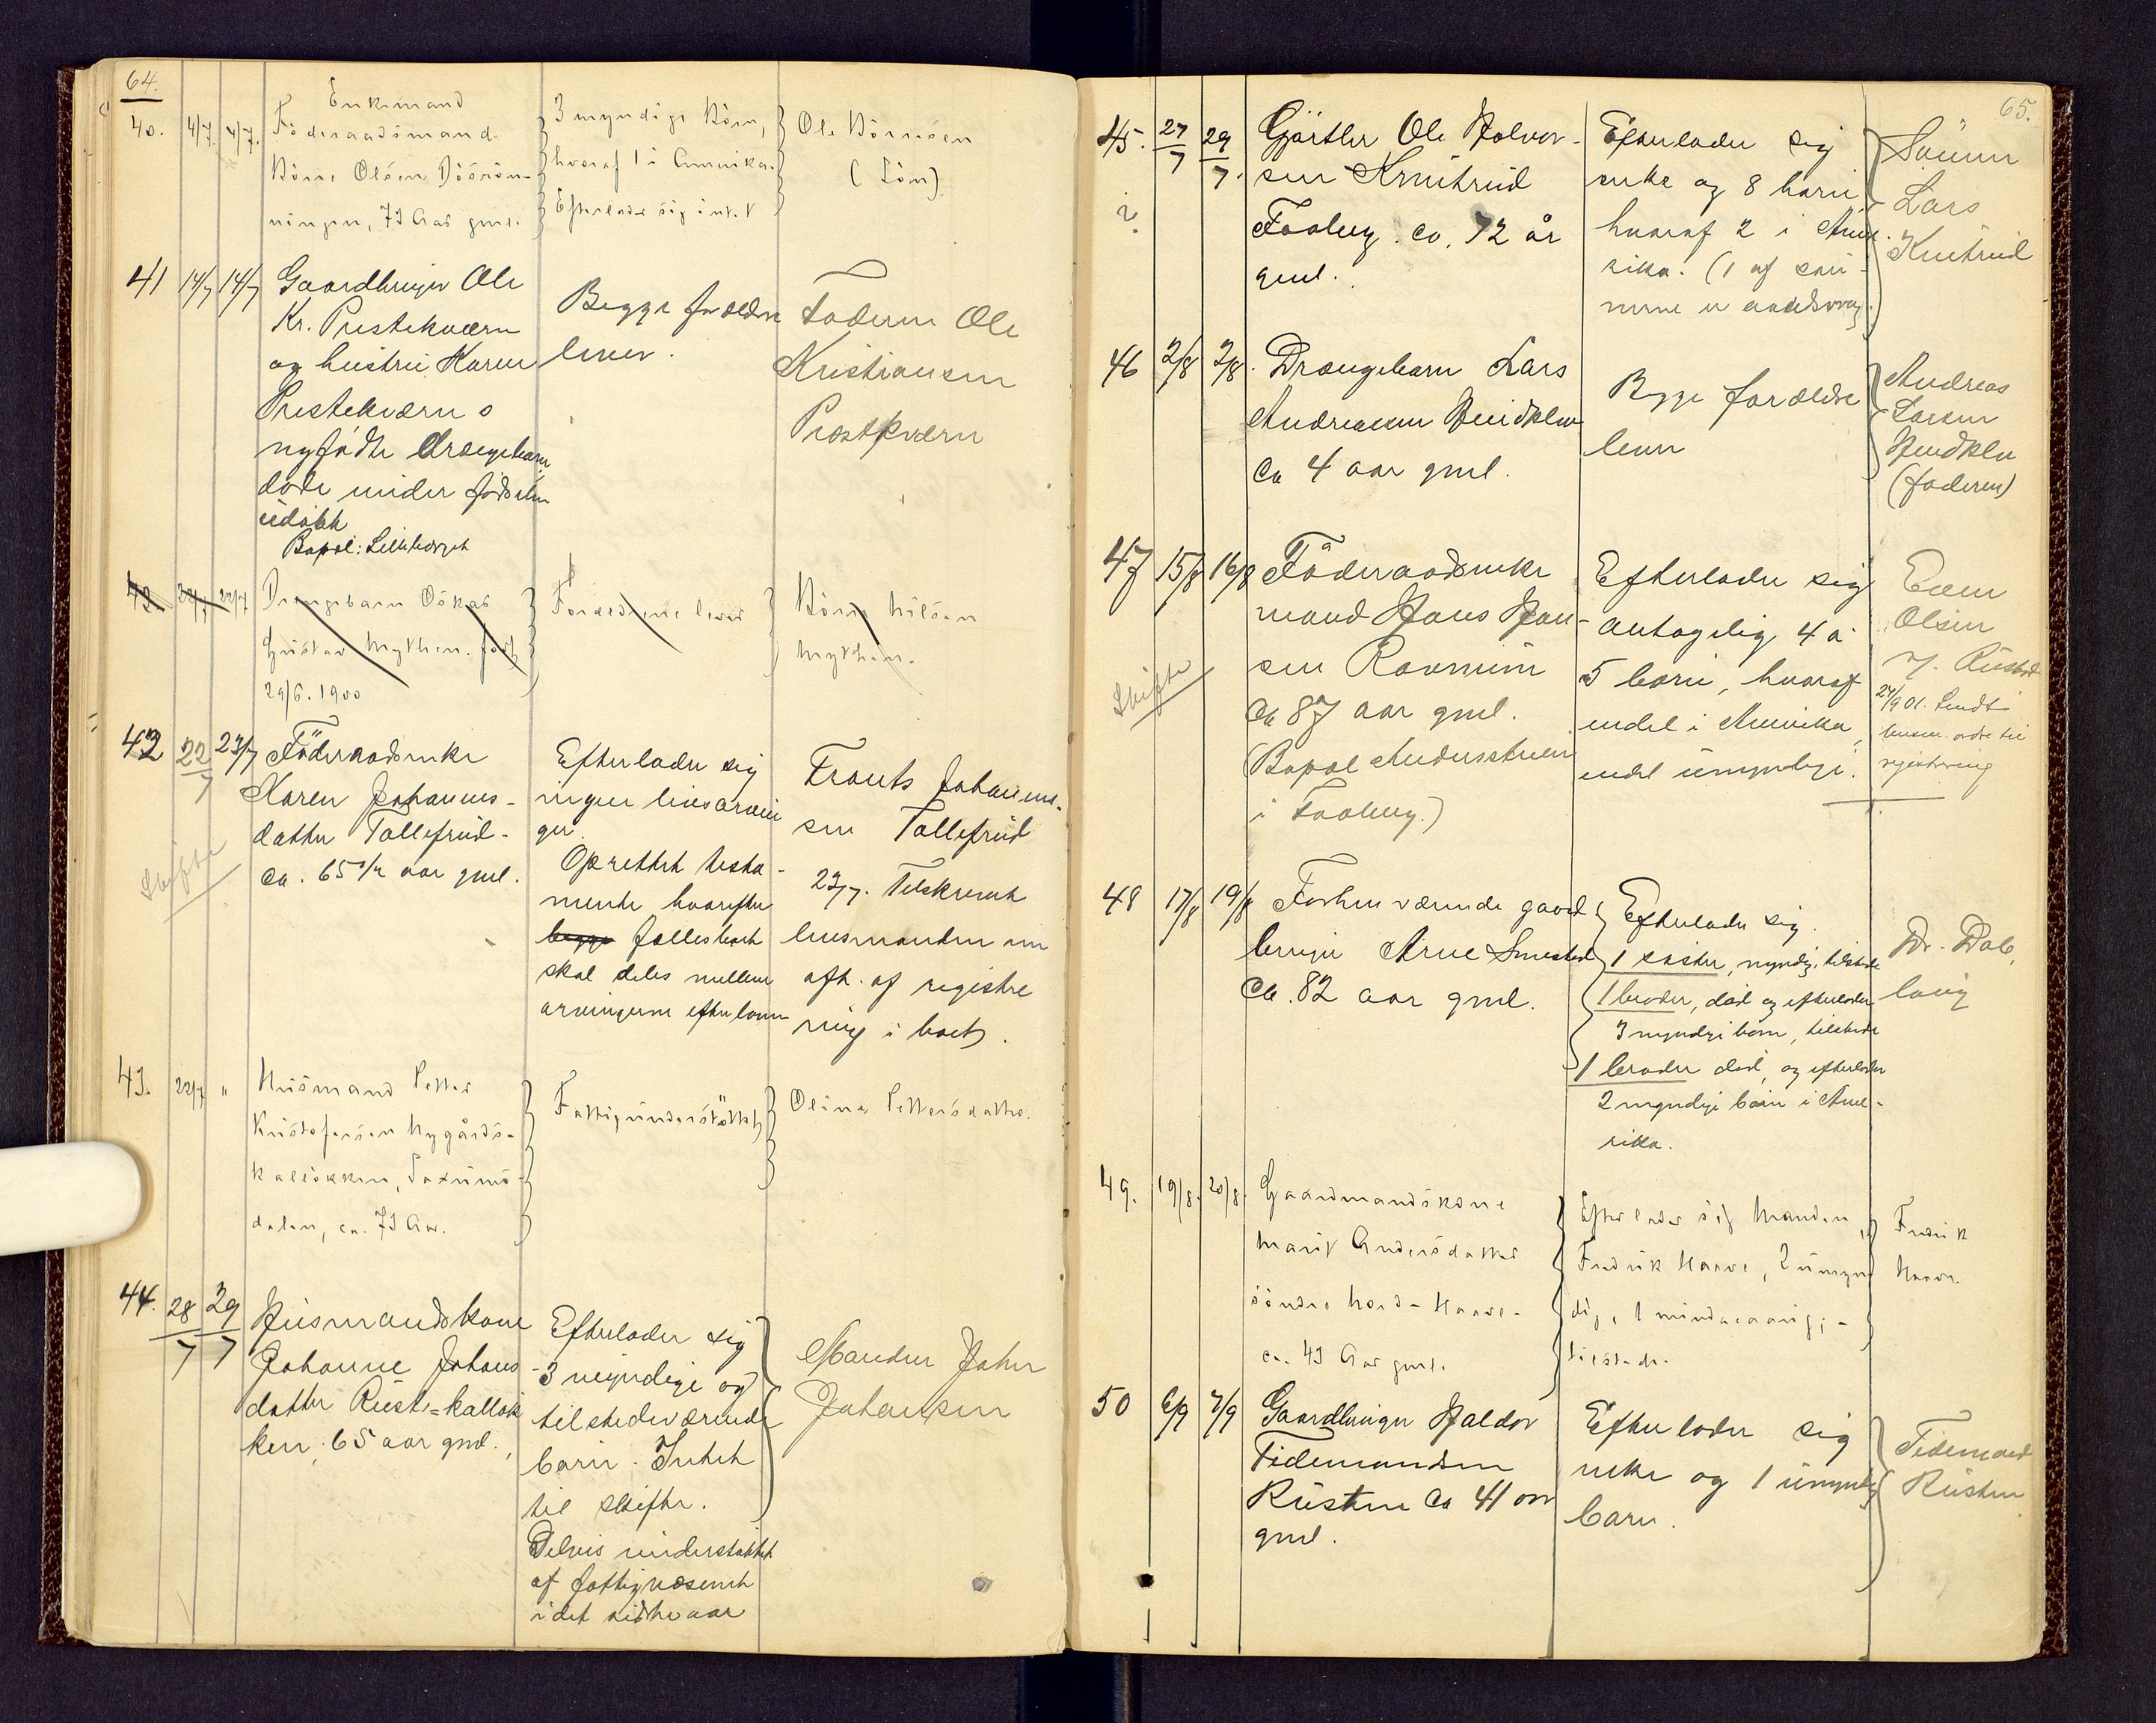 64.
40. 4/7. 4/7.
Enkemand
Föderaadsmand
Börre Olsen DöSrön-
ningen, 73 Aar gml.
3 myndige Börn,
hvoraf 1 i Amerika.
Efterlader sig intet
Ole Börresen
(Sön)
41 14/7 14/7
Gaardbruger Ole
Kr. Prestekværn
og hustru Karen
Prestekværns
nyfødte drængebarn
døde under fødselen
udøbt
Bopæl: Lillehammer
Begge forældre
lever.
Faderen Ole
Kristiansen
Prestkværn
42 22/7 22/7
Drengebarn Oskar
Gustav Mythen. født
29/6. 1900
Forældrene lever
Börre Nilsen
Mythen.
42 22/7 23/7
Föderaadsenke
Karen Johannes-
datter Tollefrud-
ca. 65 1/2 aar gml.
Skifte
Efterlader sig
ingen livsarvin
ger.
Oprettet testa-
mente hvorefter
begge fællesboet
skal deles mellem
arvingerne efter loven
Frants Johannes-
sen Tollefrud
23/7. Tilskrevet
lensmanden om
afh. af registre
ring i boet.
43. 22/7 "
Husmand Petter
Kristofersen Nygårds-
kalløkken, Saxums-
dalen, ca. 73 Aar.
Fattigunderstöttet
Oline Pettersdatter.
44. 28/7 29/7
Husmandskone
Johanne Johans-
datter Ruste=kalløk
ken, 65 aar gml.
Efterlader sig
3 myndige og
tilstedeværende
børn. Intet
til skifte.
Delvis understøttet
af fattigvæsenet
i det sidste aar
Manden Johan
Johansen
65.
45. 27/7 29/7.
?
Gjörtler Ole Halvor-
sen Knutrud
Faaberg. ca. 72 år
gml.
Efterlader sig
enke og 8 børn
hvoraf 2 i Ame-
rika. (1 af søn-
nerne er aandssvag.)
Sønnen
Lars
Knutrud
46 2/8 2/8.
Drængebarn Lars
Andreassen Hundklev
ca 4 aar gml.
Begge forældre
lever
Andreas
Larsen
Hundklev
(faderen)
47 15/8 16/8
Föderaadsenke
mand Hans Han-
sen Ravnum
ca 87 aar gml.
(Bopæl Andersstuen
i Faaberg.)
Skifte
Efterlader sig
antagelig 4 a
5 børn, hvoraf
endel i Amerika,
endel umyndige.
Even
Olsen
n. Rustad
24/9 01. Sendt
lensm. ordre til
registrering
48 17/8 19/8
Forhenværende gaard
bruger Arne Smestad
ca. 82 aar gml.
Efterlader sig.
1 søster, myndig, tilstede
1 broder, død og efterlader
3 myndige børn, tilstede
1 broder død, og efterlader
2 myndige børn i Ame-
rika.
Dr. Dab
lang
49. 19/8. 20/8.
Gaardmandskone
Marit Andersdatter
söndre Nord-Haave-
ca. 43 Aar gml.
Efterlader sig Manden,
Fredrik Haave, 2 umyn
dig, 1 mindreaarig; -
tilstede.
Fredrik
Haave.
50 6/9 7/9
Gaardbruger Haldor
Tidemandsen
Rusten ca 41 aar
gml.
Efterlader sig
enke og 1 umyndig
barn.
Tidemand
Rusten